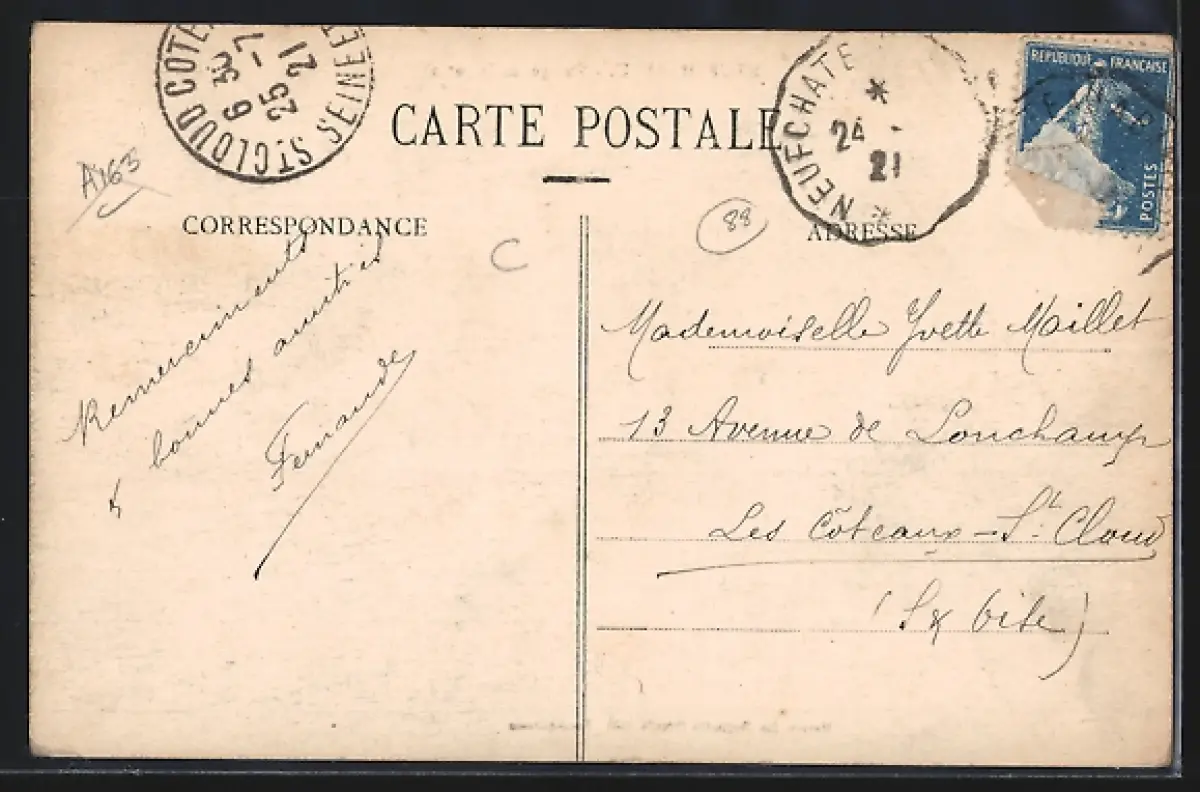 ST CLOUD COTE
SEINE ET
6 30
25 - 7
21
NEUFCHATE
24 -
21
REPUBLIQUE FRANÇAISE
POSTES
CARTE POSTALE
A163
88
C
CORRESPONDANCE
ADRESSE
Remerciments
& bonnes amitiés
Fernande
Mademoiselle Yvette Maillet
13 Avenue de Lonchamp
Les Côteaux - St. Cloud
(S & Oise)